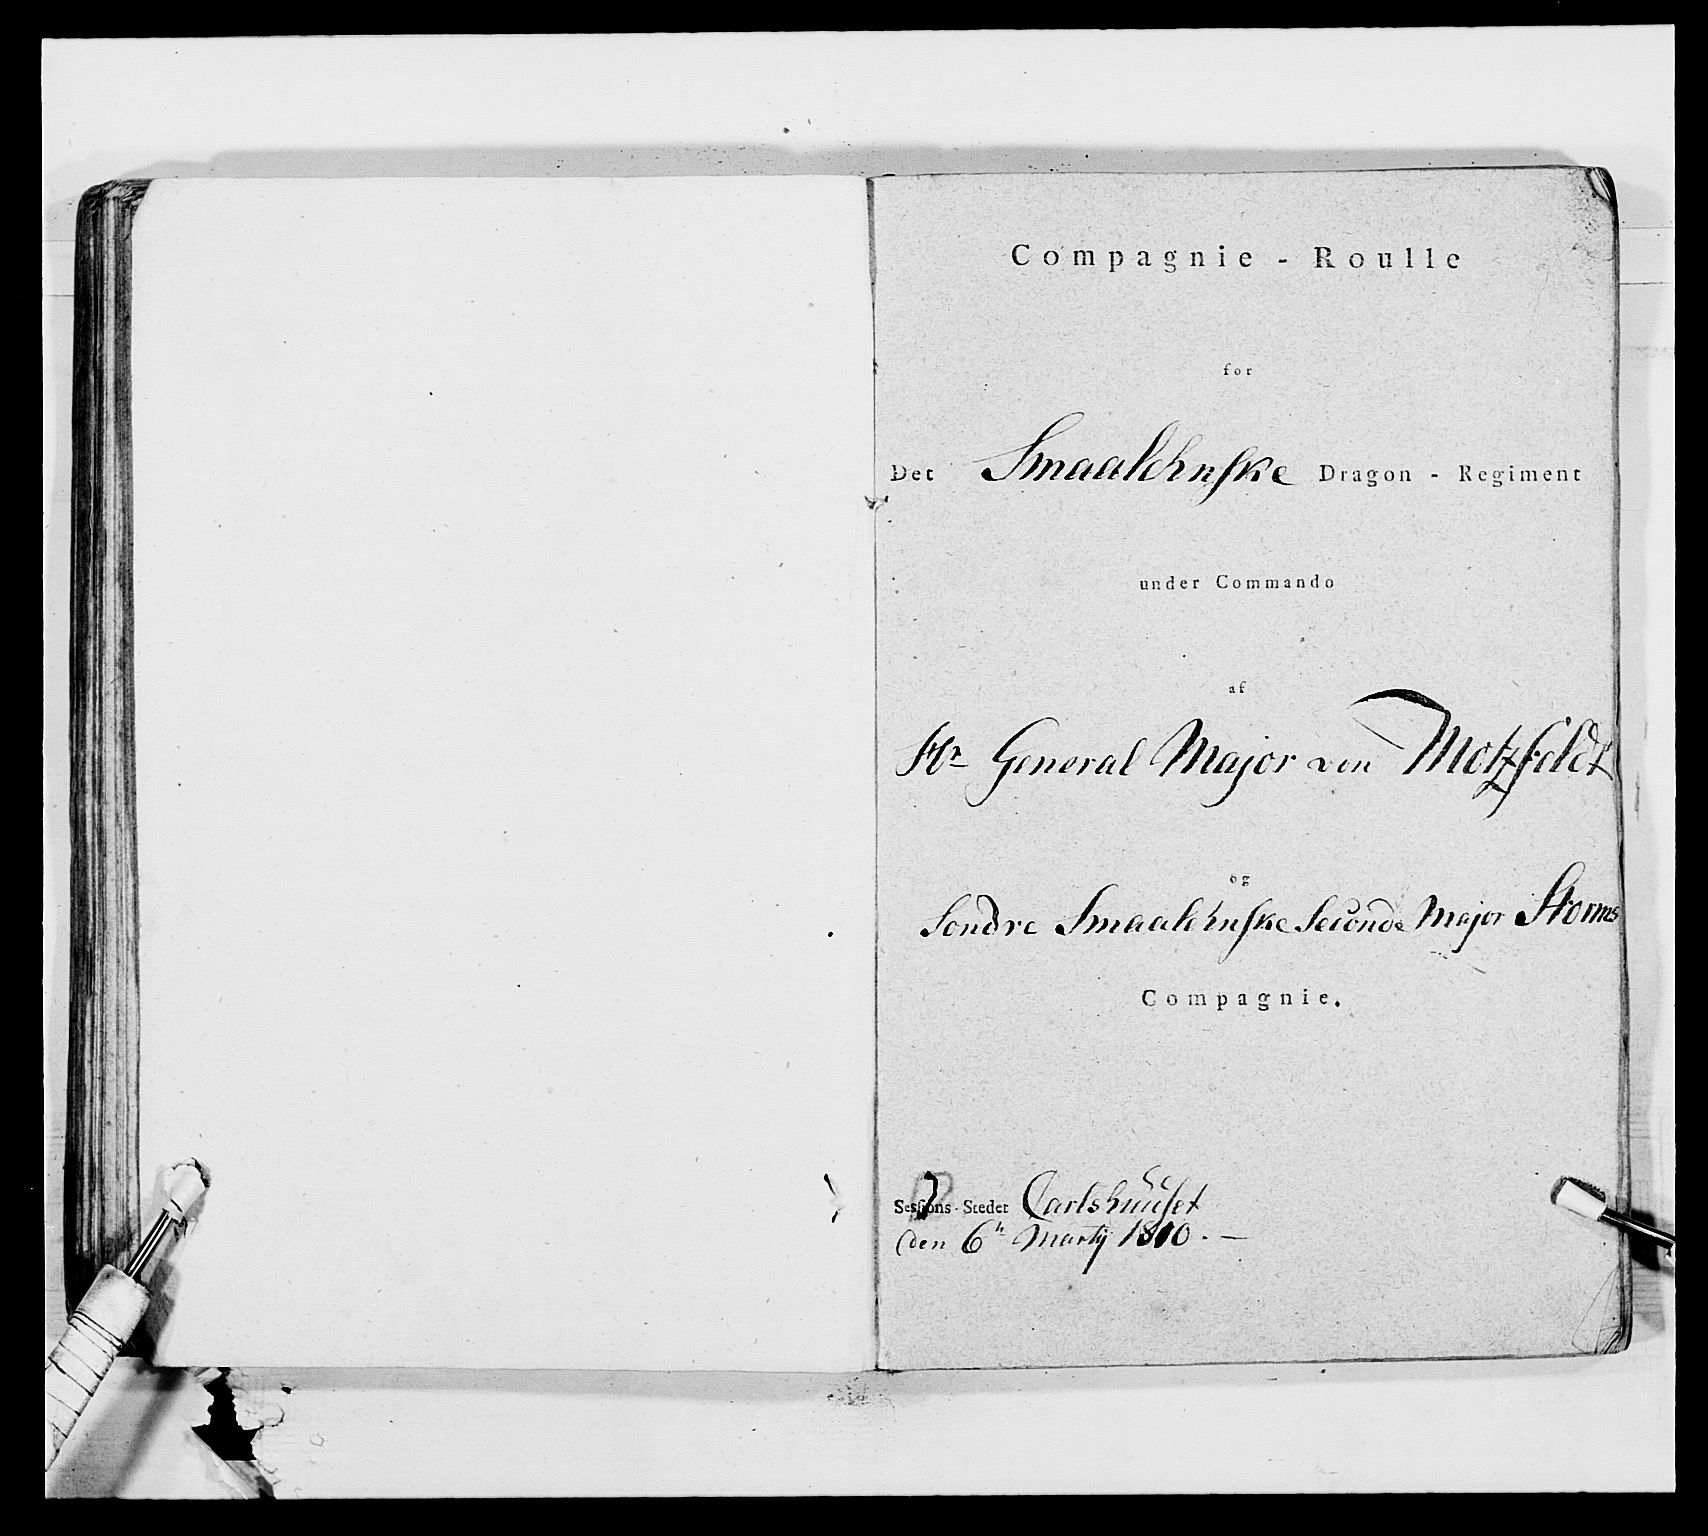 Compagnie - Roulle
for
Det Smaalehnske Dragon - Regiment
under Commando
af
Hr General Major von Motzfeldt
og
Söndre Smaalehnske Second Major Storms
Compagnie.
Sessions-Stedet Carlshuuset
den 6te Martij 1810. —